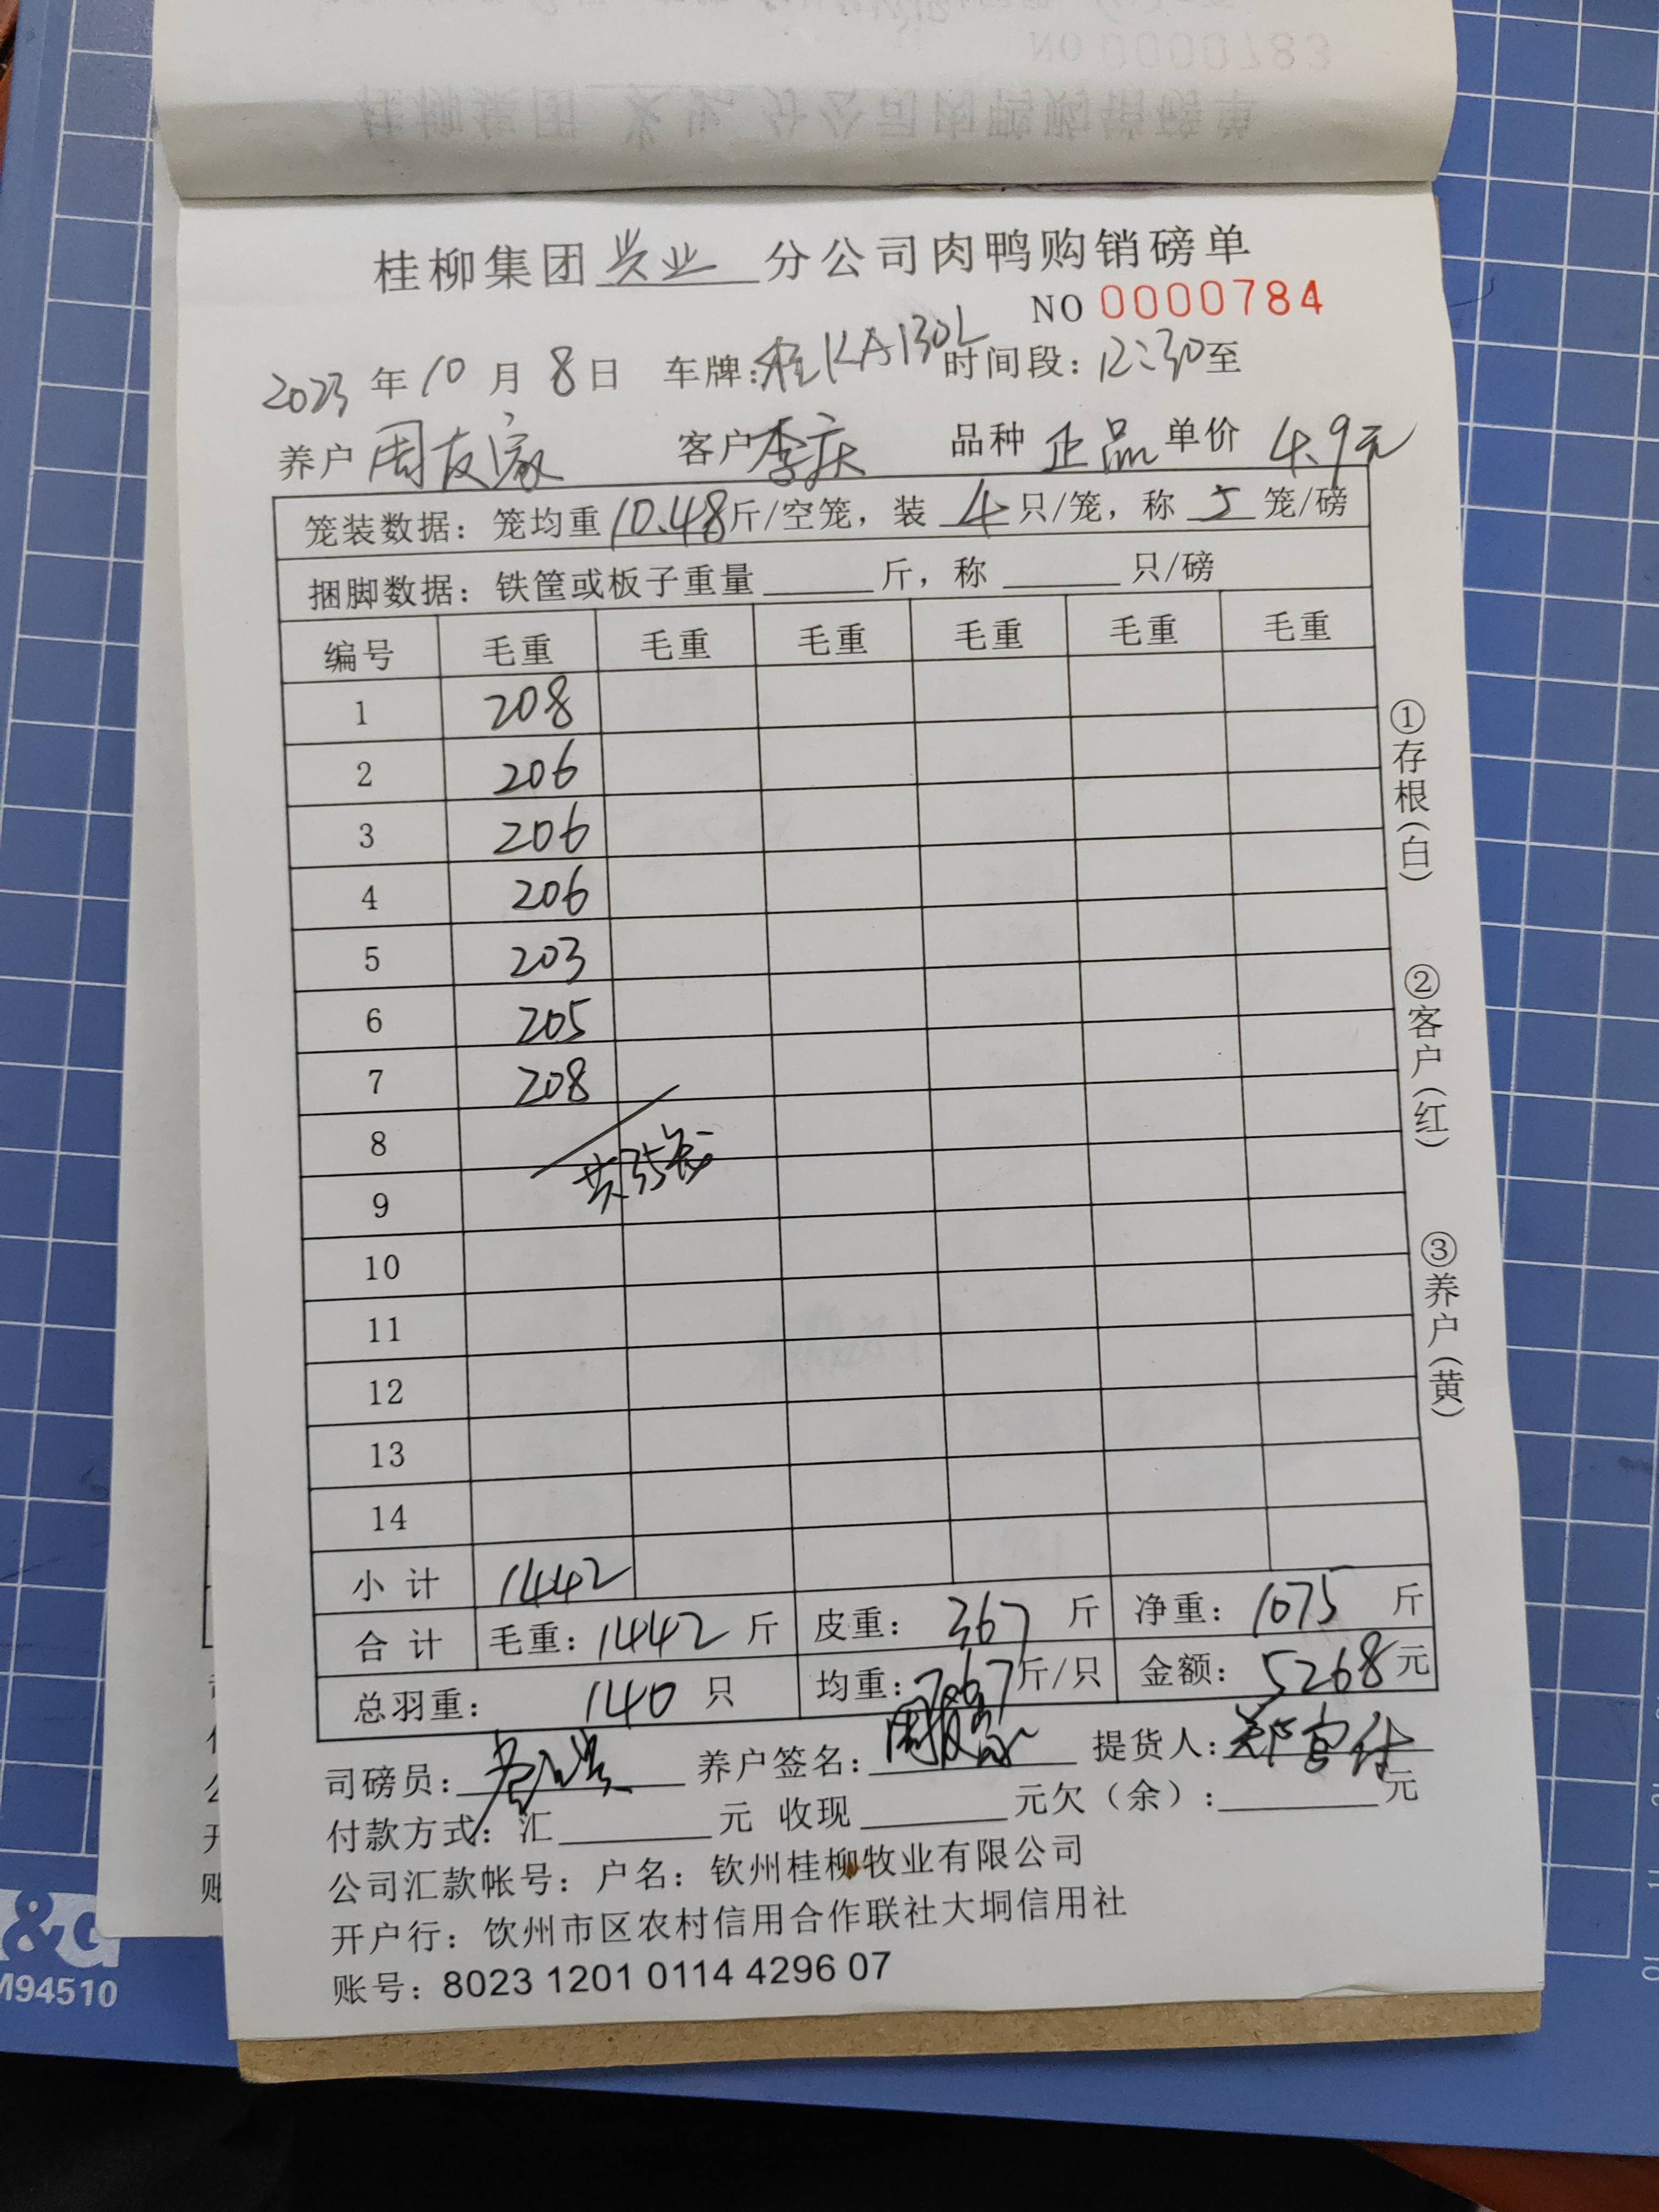 NO 0000783
桂柳集团 分公司肉鸭购销磅单
桂柳集团 兴业 分公司肉鸭购销磅单
NO 0000784
2023 年 10 月 8 日 车牌:桂KA130L 时间段: 12:30 至
养户 周友家 客户 李庆 品种 正品 单价 4.9元
笼装数据: 笼均重 10.48 斤/空笼, 装 4 只/笼, 称 5 笼/磅
捆脚数据: 铁筐或板子重量 斤, 称 只/磅
编号 毛重 毛重 毛重 毛重 毛重 毛重
1 208
2 206
3 206
4 206
5 203
6 205
7 208
8
9 共35笼
10
11
12
13
14
小计 1442
合计 毛重: 1442 斤 皮重: 367 斤 净重: 1075 斤
总羽重: 140 只 均重: 7.67 斤/只 金额: 5268 元
司磅员: 养户签名: 周友家 提货人:
付款方式: 汇 元 收现 元欠（余）: 元
公司汇款帐号: 户名: 钦州桂柳牧业有限公司
开户行: 钦州市区农村信用合作联社大垌信用社
账号: 8023 1201 0114 4296 07
①存根（白）
②客户（红）
③养户（黄）
&G
M94510